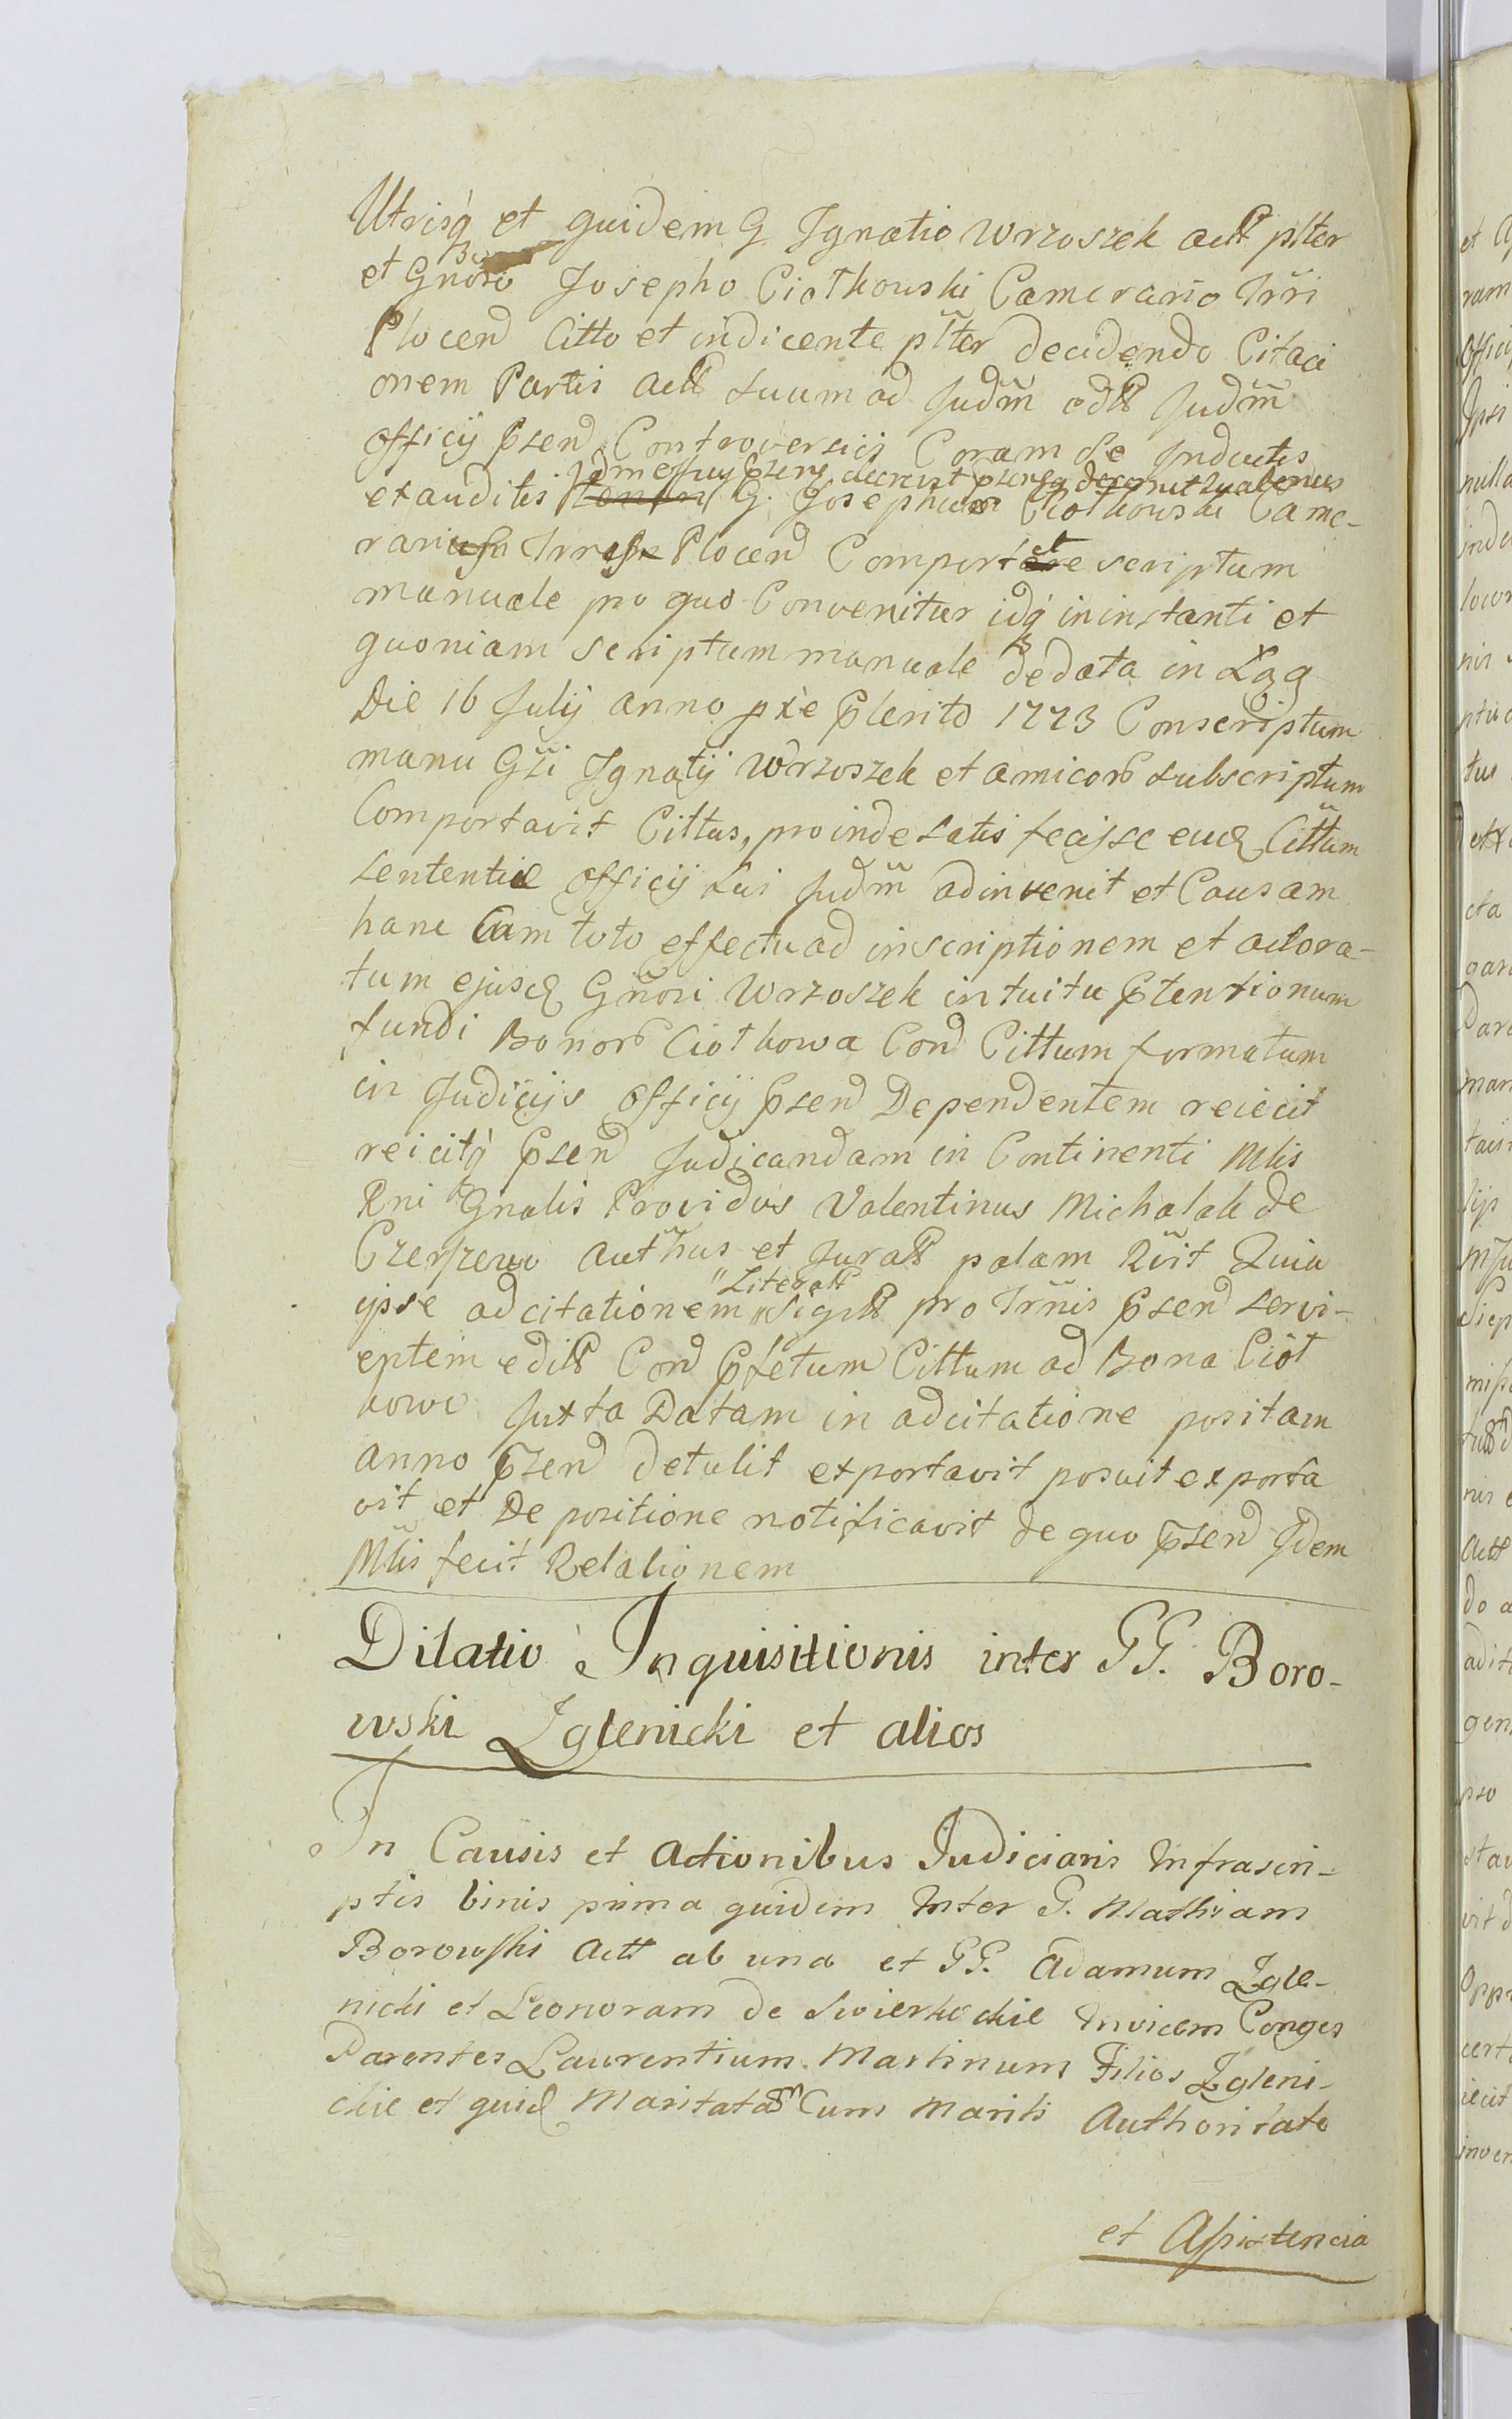 Utrisq́ et quidem G. Ignatio Wrzoszek act plter
et Gnõso Josepho Ciołkowski Camerario Trri
Plocen Citto et indicente pltẽr decidendo Citaci
onem Partis act suum ad Judm̃ Judm̃
officij Psen Controversijs Coram se Inductis
Judm officij Psens decrevit quatenus
exauditis G. Josephus Ciołkowski Came-
rarius Plocen Comportet scriptum
manuale pro quo Convenitur idq́ in instanti et
quoniam scriptum manuale de data in
Die 16 Julij anno pxe Pterito 1773 Conscriptum
manu Gsi Ignatij Wrzoszek et amicor subscriptum
Comportavit Cittus, proinde satis fecisse eund Cittum
sententiæ officij sui Judm̃ adinvenit et Causam
hanc Cum toto effectu ad inscriptionem et actora-
tum ejusd Gñosi Wrzoszek intuitu Ptensionum
fundi Bonor Ciołkowa Con Cittum formatum
in Judicijs officij Psen Dependentem reiecit
reicitq́ Psen Judicandam in Continenti Mlis
Rni Gnalis Providus Valentinus Michalak de
Auth̃us et Jurat palam Rc̃it Quia
ipse ad citationem "Literat" Sigill pro Trñis Psen servi-
entem edit Con Pfetum Cittum ad Bona Cioł
kowo Juxta Datam in adcitatione positam
anno Psen detulit exportavit posuit exporta
vit et De positione notificavit de quo Psen Idem
Mlis fecit Relationem
Dilatio Inquisitionis inter GG. Boro-
wski Zglenicki et alios
In Causis et Actionibus Judiciariis Infrascri-
ptis binis prima quidem Inter G. Mathiam
Borowski Act ab una et GG. Adamum Zgle-
nicki et Leonoram de Swierkockie Invicem Conges
Parentes Laurentium Martinum Filios Zgleni-
ckie et quid Maritatam Cum Mariti Authoritate
et Assistencia